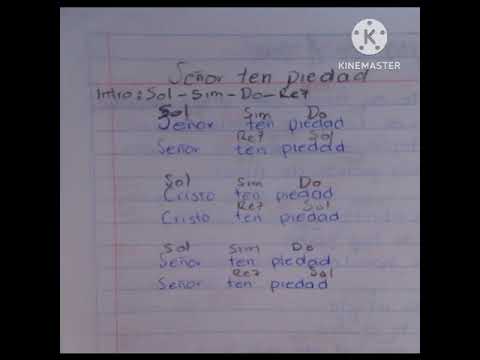 KINEMASTER
Señor ten piedad
Intro: Sol - Sim - Do - Re7
Sol Sim Do
Señor ten piedad
Re7 Sol
Señor ten piedad
Sol Sim Do
Cristo ten piedad
Re7 Sol
Cristo ten piedad
Sol Sim Do
Señor ten piedad
Re7 Sol
Señor ten piedad